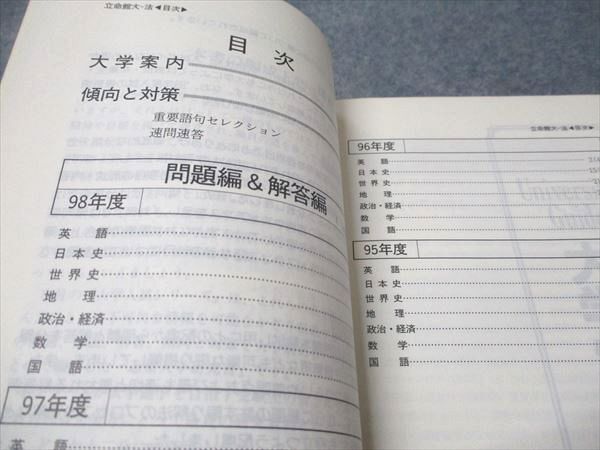 立命館大-法◀目次▶
目次
大学案内
傾向と対策
重要語句セレクション
速問速答
問題編&解答編
98年度
英語
日本史
世界史
地理
政治・経済
数学
国語
97年度
英語
立命館大-法◀目次▶
96年度
英語
日本史
世界史
地理
政治・経済
数学
国語
95年度
英語
日本史
世界史
地理
政治・経済
数学
国語